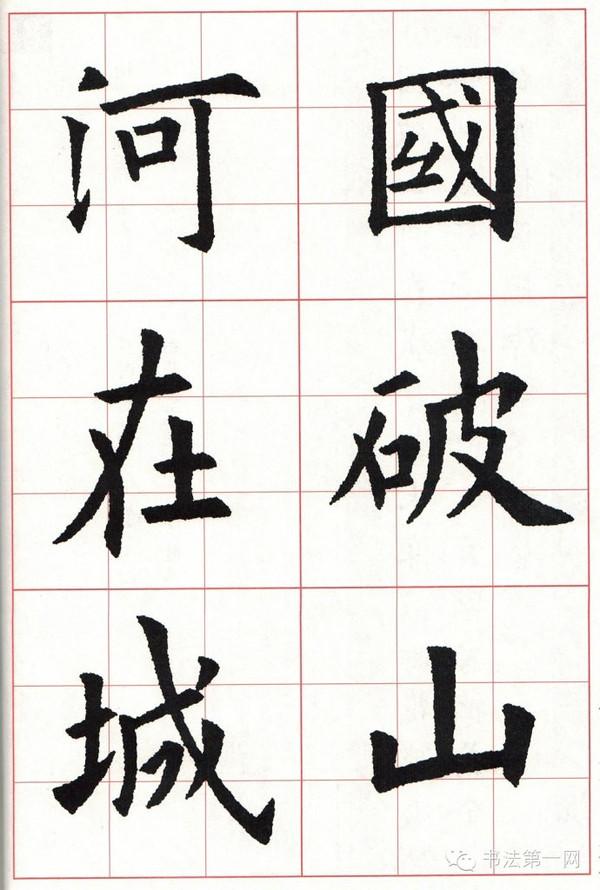 國破山
河在城
书法第一网